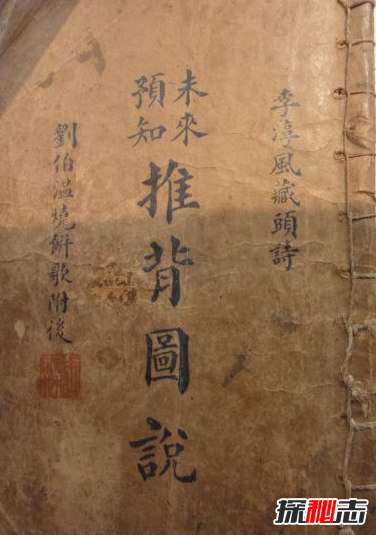 李淳風藏頭詩
未來
預知
推背圖說
劉伯溫燒餅歌附後
探秘志